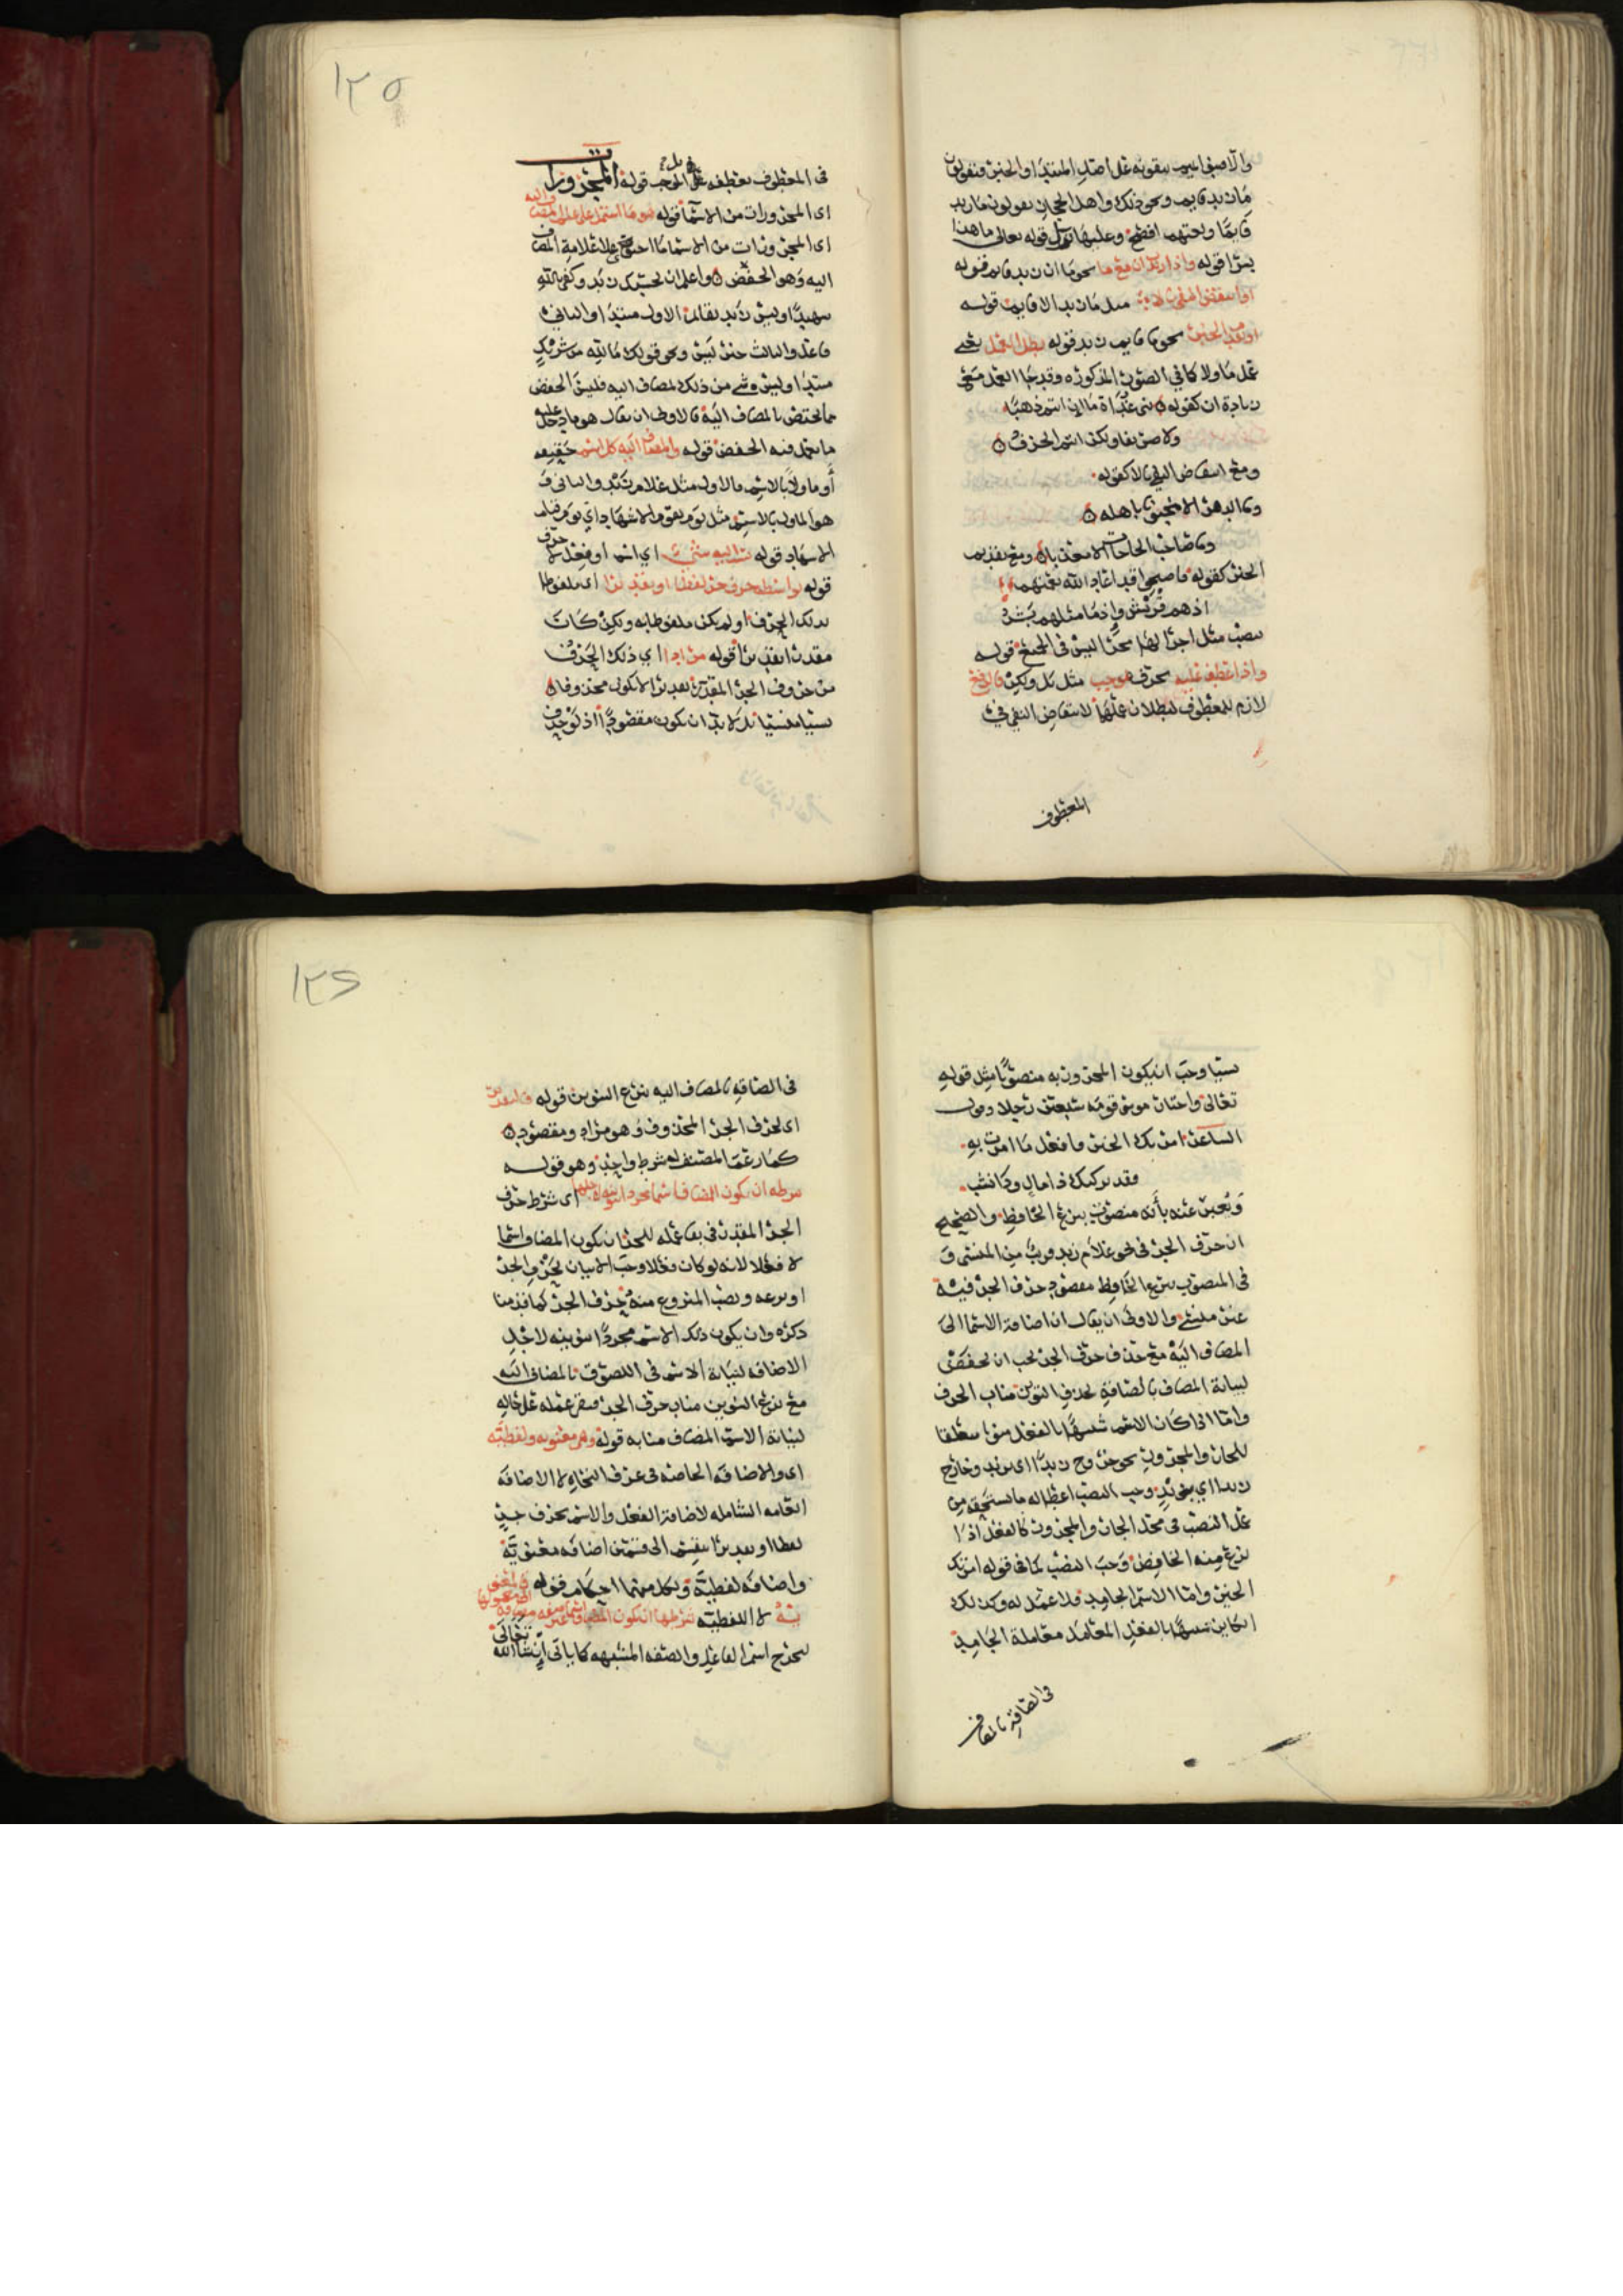 والا فبنو تميم يبقونه على اصل المبتدا والخبر فتقولون
ما زيد قايم ونحو ذلك واهل الحجاز يقولون ما زيد
قايما ولغتهم افصح وعليها قوله تعالى ما هذا
بشرا قوله واذا زيدت ان مع ما نحو ما ان زيد قايم قوله
او انتقض النفي بالا مثل ما زيد الا قايم قوله
او تقدم الخبر نحو ما قايم زيد قوله بطل العمل يعني
عمل ما ولا كا في الصور المذكوره وقد جا العمل مع
زيادة ان كقوله بني غدانة ما ان انتم ذهبا
ولا صريفا ولكن انتم الخزف
ومع انتقاض النفي بالا كقوله
وما الدهر الا منجنونا باهله
وما صاحب الحاجات الا معذبا ومع تقديم
الخبر كقوله فاصبحوا قد اعاد الله نعمتهم
اذ هم قريش واذ ما مثلهم بشر
بنصب مثل اجرا لها مجرا ليس في الجميع قوله
واذا عطف عليه بحرف موجب مثل بل ولكن فالرفع
لازم للمعطوف لبطلان عملها لانتقاض النفي في
المعطوف
١٢٥
في المعطوف بعطفه على الموجب قوله المجرورات
اى المجرورات من الاسما قوله هو ما اشتمل على علم المضاف اليه
اى المجرورات من الاسما ما احتوى على علامة المضاف
اليه وهو الخفض واعلم ان بحسبك زيد وكفى بالله
شهيدا وليس زيد بقائم الاول مبتدا والثاني
فاعل والثالث خبر ليس ونحو قولك ما لله من شريك
مبتدا وليس شي من ذلك لمضاف اليه فليس الخفض
مما يختص بالمضاف اليه فالاولى ان يقال هو ما دخل عليه
ما يعمل فيه الخفض قوله والمضاف اليه كل اسم حقيقه
أو ماولا بالاسم فالاول مثل غلام زيد والثاني
هو الماول بالاسم مثل يوم يقوم الاشهاد اي يوم قيام
الاشهاد قوله نسب اليه شي اي اسم او فعل لا حرف
قوله بواسطه حرف جر لفظا او تقديرا اى ملفوظا
بذلك الحرف او لم يكن ملفوظا به ولكن كان
مقدرا تقديرا قوله مرادا اي ذلك الحرف
من حروف الجر المقدر تقديرا لا يكون محذوفا
نسيا منسيا بل لا بد ان يكون مقصودا اذ لو حذف
نسيا وجب ان يكون المجرور به منصوبا مثل قوله
تعالى واختار موسى قومه سبعين رجلا وقول
الشاعر امرتك الخير فافعل ما امرت به
فقد تركتك ذا مال وذا نشب
ويعبر عنه بأنه منصوب بنزع الخافظ والصحيح
ان حرف الجر في نحو غلام زيد قريب من المنسي و
في المنصوب بنزع الخافظ مقصود حذف الجر فيه
غير منسي والاولى ان يقال ان اضافة الاسما الى
المضاف اليه مع حذف حرف الجر يجب ان تخفض
لنيابة المضاف بالصاقه لحذف التنوين مناب الحرف
واما اذا كان الاسم شبيها بالفعل متعلقا
للجار والمجرور نحو
زيدا اي بزيد وجب النصب اعطا له ما يستحقه من
عمل النصب في محل الجار والمجرور كالفعل اذا
نزع منه الخافض وجب النصب كما في قوله امرتك
الخير واما الاسم الجامد فلا عمل له وكذلك
الكاين شبيها بالفعل المعامل معاملة الجامد
في الصاقه بالمضاف
١٢٦
في الصاقه بالمضاف اليه بنزع التنوين قوله فالتقدير
اى لحرف الجر المحذوف وهو مراد ومقصود
كما زعم المصنف له شرط واحد وهو قوله
شرطه ان يكون المضاف اسما مجردا تنوينه لاجلها اى شرط حرف
الجر المقدر في بقا عمله للجر ان يكون المضاف اسما
لا فعلا لانه لو كان فعلا وجب الاتيان بحرف الجر
او نزعه ونصب المنزوع منه حرف الجر كما قدمنا
ذكره وان يكون ذلك الاسم مجردا تنوينه لاجل
الاضافه لنيابة الاسم في اللصوق بالمضاف اليه
مع نزع التنوين مناب حرف الجر فبقي عمله على حاله
لنيابة الاسم المضاف منابه قوله وهي معنويه ولفظيه
اى والاضافه الخاصه في عرف النحاه لا الاضافه
العامه الشامله لاضافة الفعل والاسم بحرف جر
لفظا او تقديرا تنقسم الى قسمين اضافه معنويه
واضافه لفظيه ولكل منهما احكام قوله فالمعنويه
لا اللفظيه شرطها ان يكون المضاف غير صفه مضافه الى معمولها
ليخرج اسم الفاعل والصفه المشبهه كما ياتي ان شا الله تعالى